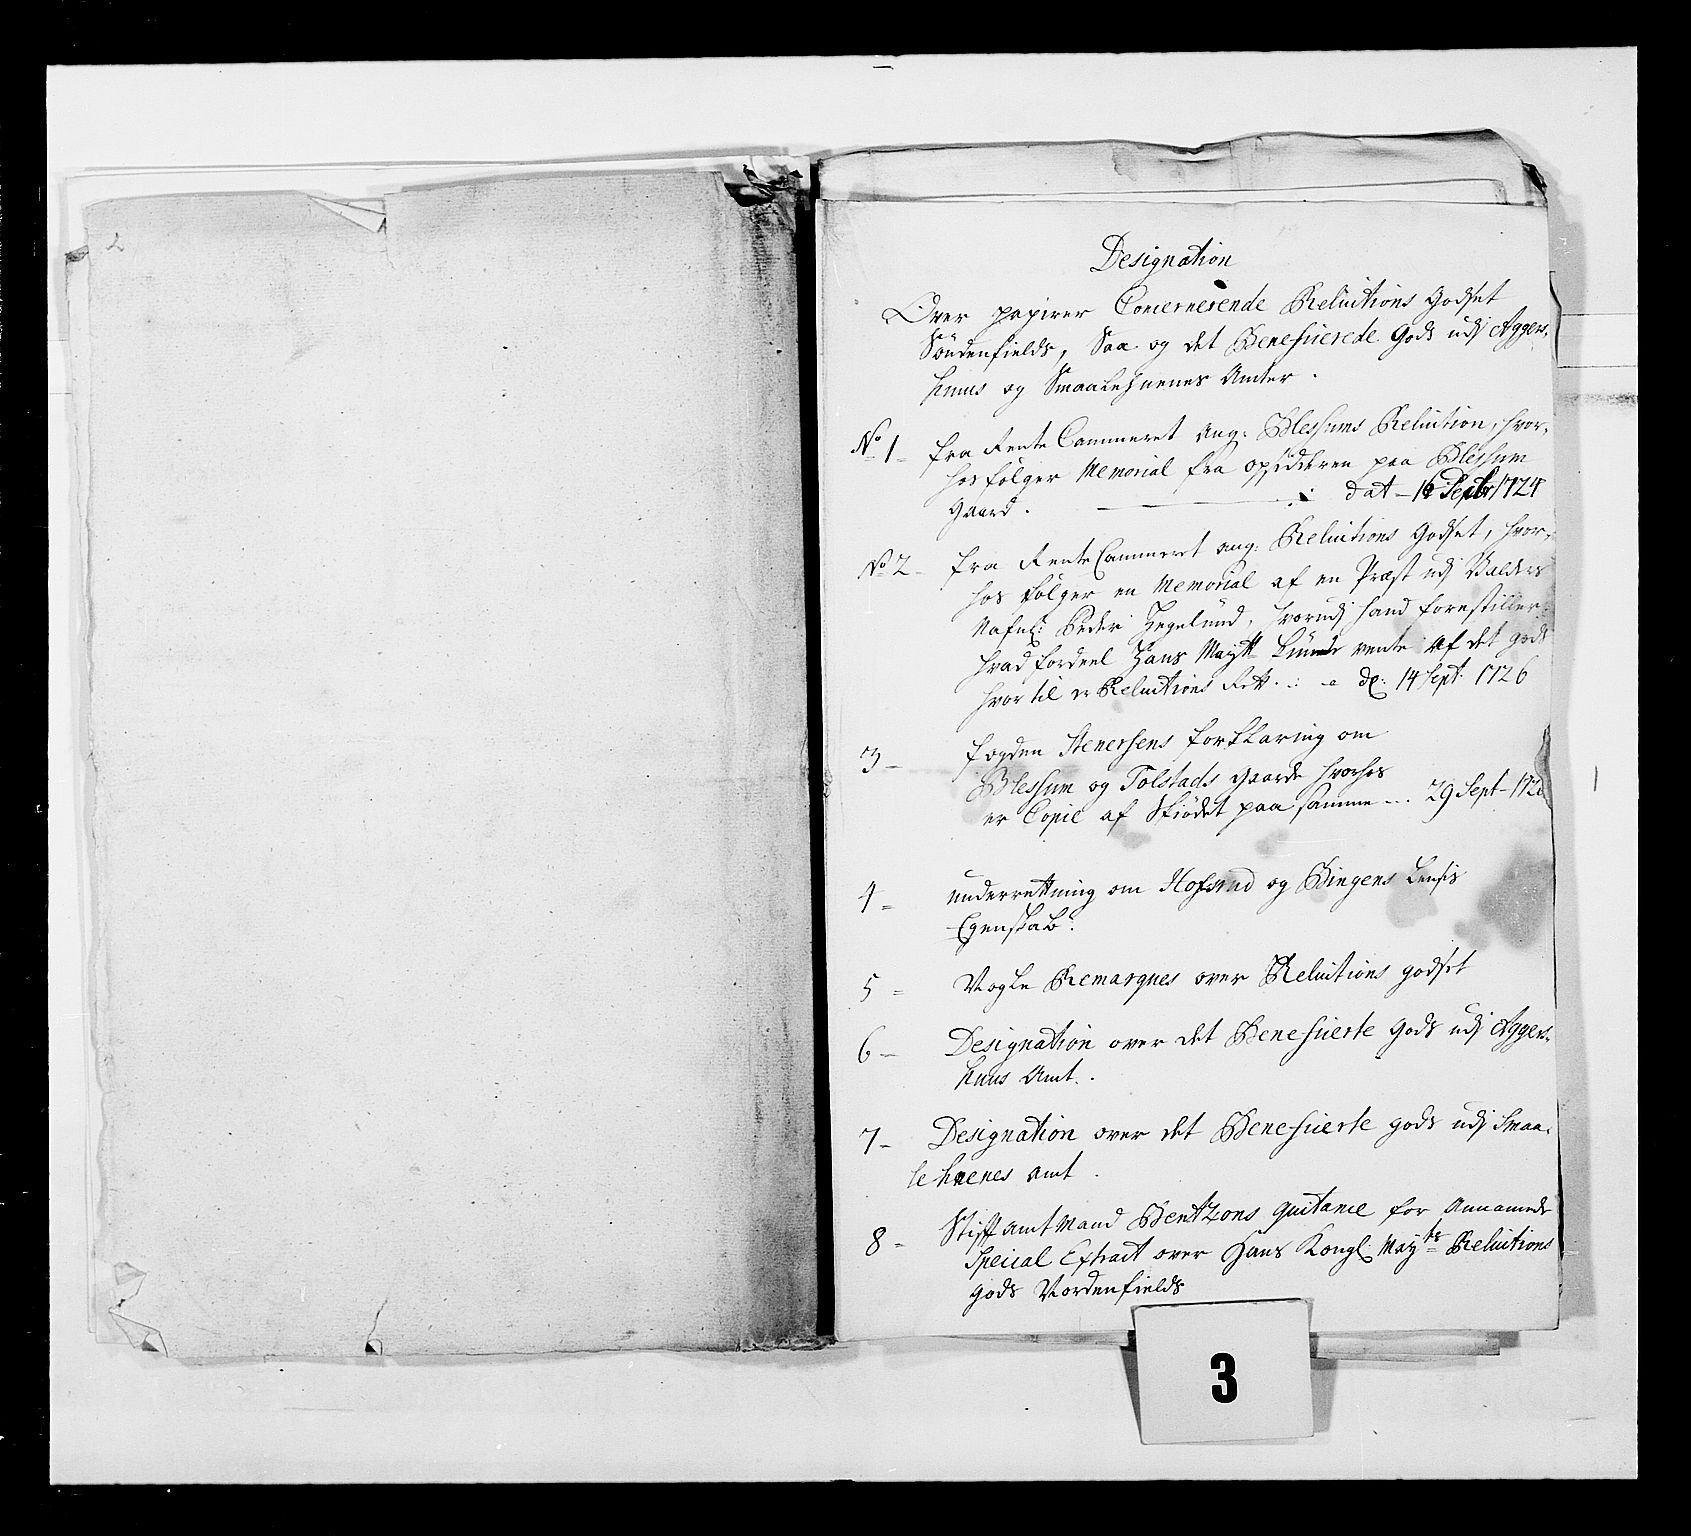 2
Designation
Over papirer Concernerende Reluitions Godset
Söndenfields, Saa og det Beneficerede Gods udj Agger-
huus og Smaalehnenes Amter.
No 1 fra Rente Cammeret ang: Blessums Reluition, hvor-
hos følger Memorial fra opsidderen paa Blessum
Gaard. dat - 16 Septbr 1724
No 2 fra Rente Cammeret ang: Reluitions Godset, hvor-
hos følger en Memorial af en Præst udj Valders
Nafnl: Peder Hegelund, hvorudj hand forestiller
hvad fordeel Hans Maytt Kunde vente af det gods
hvortil er Reluitions Rett. d: 14 Sept. 1726
3 fogden Stenersens forklaring om
Blessum og Tolstads gaarde hvorhos
er Copie af Skiödet paa samme ... 29 Sept - 172
4 underrettning om Hofsrud og Bingens Lensis
Egenskab.
5 Nogle Remarques over Reluitions godset
6 Designation over det Beneficerte Gods udj Agger-
huus Amt.
7 Designation over det Beneficerte gods udj Smaa-
lehnenes amt.
8 Stiftamtmand Bentzons quitance for Annamede
Special Extract over Hans Kongl Mayts Reluitions
gods Nordenfields
3